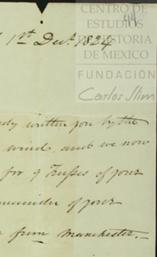 CENTRO DE
ESTUDIOS
DE HISTORIA
DE MÉXICO
FUNDACIÓN
Carlos Slim
1st Decr. 1824
written you by the
wind, and we now
for 9 Trusses of your
remainder of your
from Manchester.